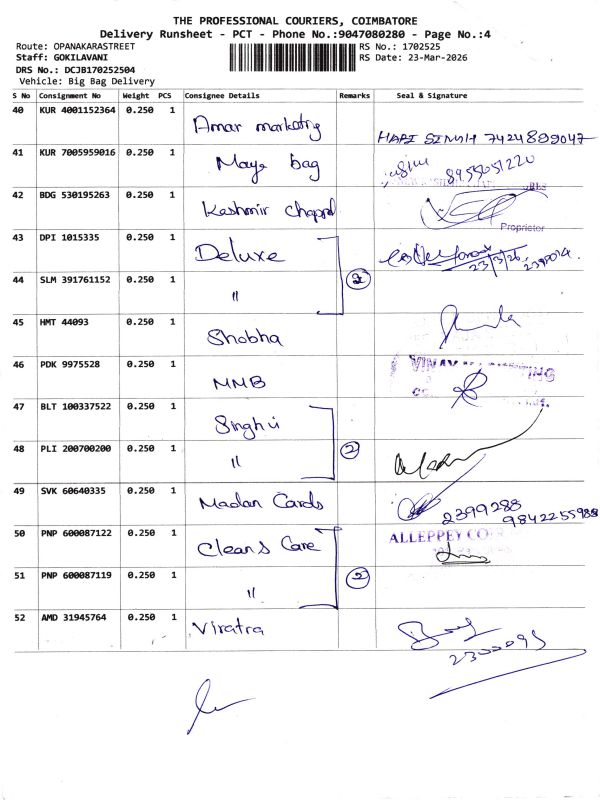 THE PROFESSIONAL COURIERS, COIMBATORE
Delivery Runsheet - PCT - Phone No.:9047080280 - Page No.:4
Route: OPANAKARASTREET
RS No.: 1702525
Staff: GOKILAVANI
RS Date: 23-Mar-2026
DRS No.: DCJB170252504
Vehicle: Big Bag Delivery
S No Consignment No Weight PCS Consignee Details Remarks Seal & Signature
40 KUR 4001152364 0.250 1 Amar marketing HARI SINGH 7424899047
41 KUR 7005959016 0.250 1 Maya bag 8955051220
42 BDG 530195263 0.250 1 Kashmir Proprietor
43 DPI 1015335 0.250 1 Deluxe 23/3/26
2
44 SLM 391761152 0.250 1 "
45 HMT 44093 0.250 1 Shobha
46 PDK 9975528 0.250 1 MMB
47 BLT 100337522 0.250 1 Singhvi
2
48 PLI 200700200 0.250 1 "
49 SVK 60640335 0.250 1 Madan Cards 2399288
9842255988
50 PNP 600087122 0.250 1 Clean & Care ALLEPPEY
2
51 PNP 600087119 0.250 1 "
52 AMD 31945764 0.250 1 Viratra
2300095